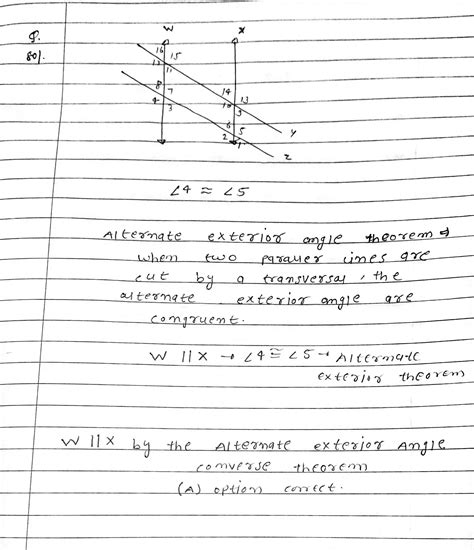 Q.
80).
W
X
16 15
12 11
8 7
4 3
14 13
10 9
6 5
2 1
Y
Z
∠4 ≈ ∠5
Alternate exterior angle theorem →
when two parallel lines are
cut by a transversal, the
alternate exterior angle are
congruent.
W || X → ∠4 ≅ ∠5 → Alternate
exterior theorem
W || X by the Alternate exterior Angle
converse theorem
(A) option correct.